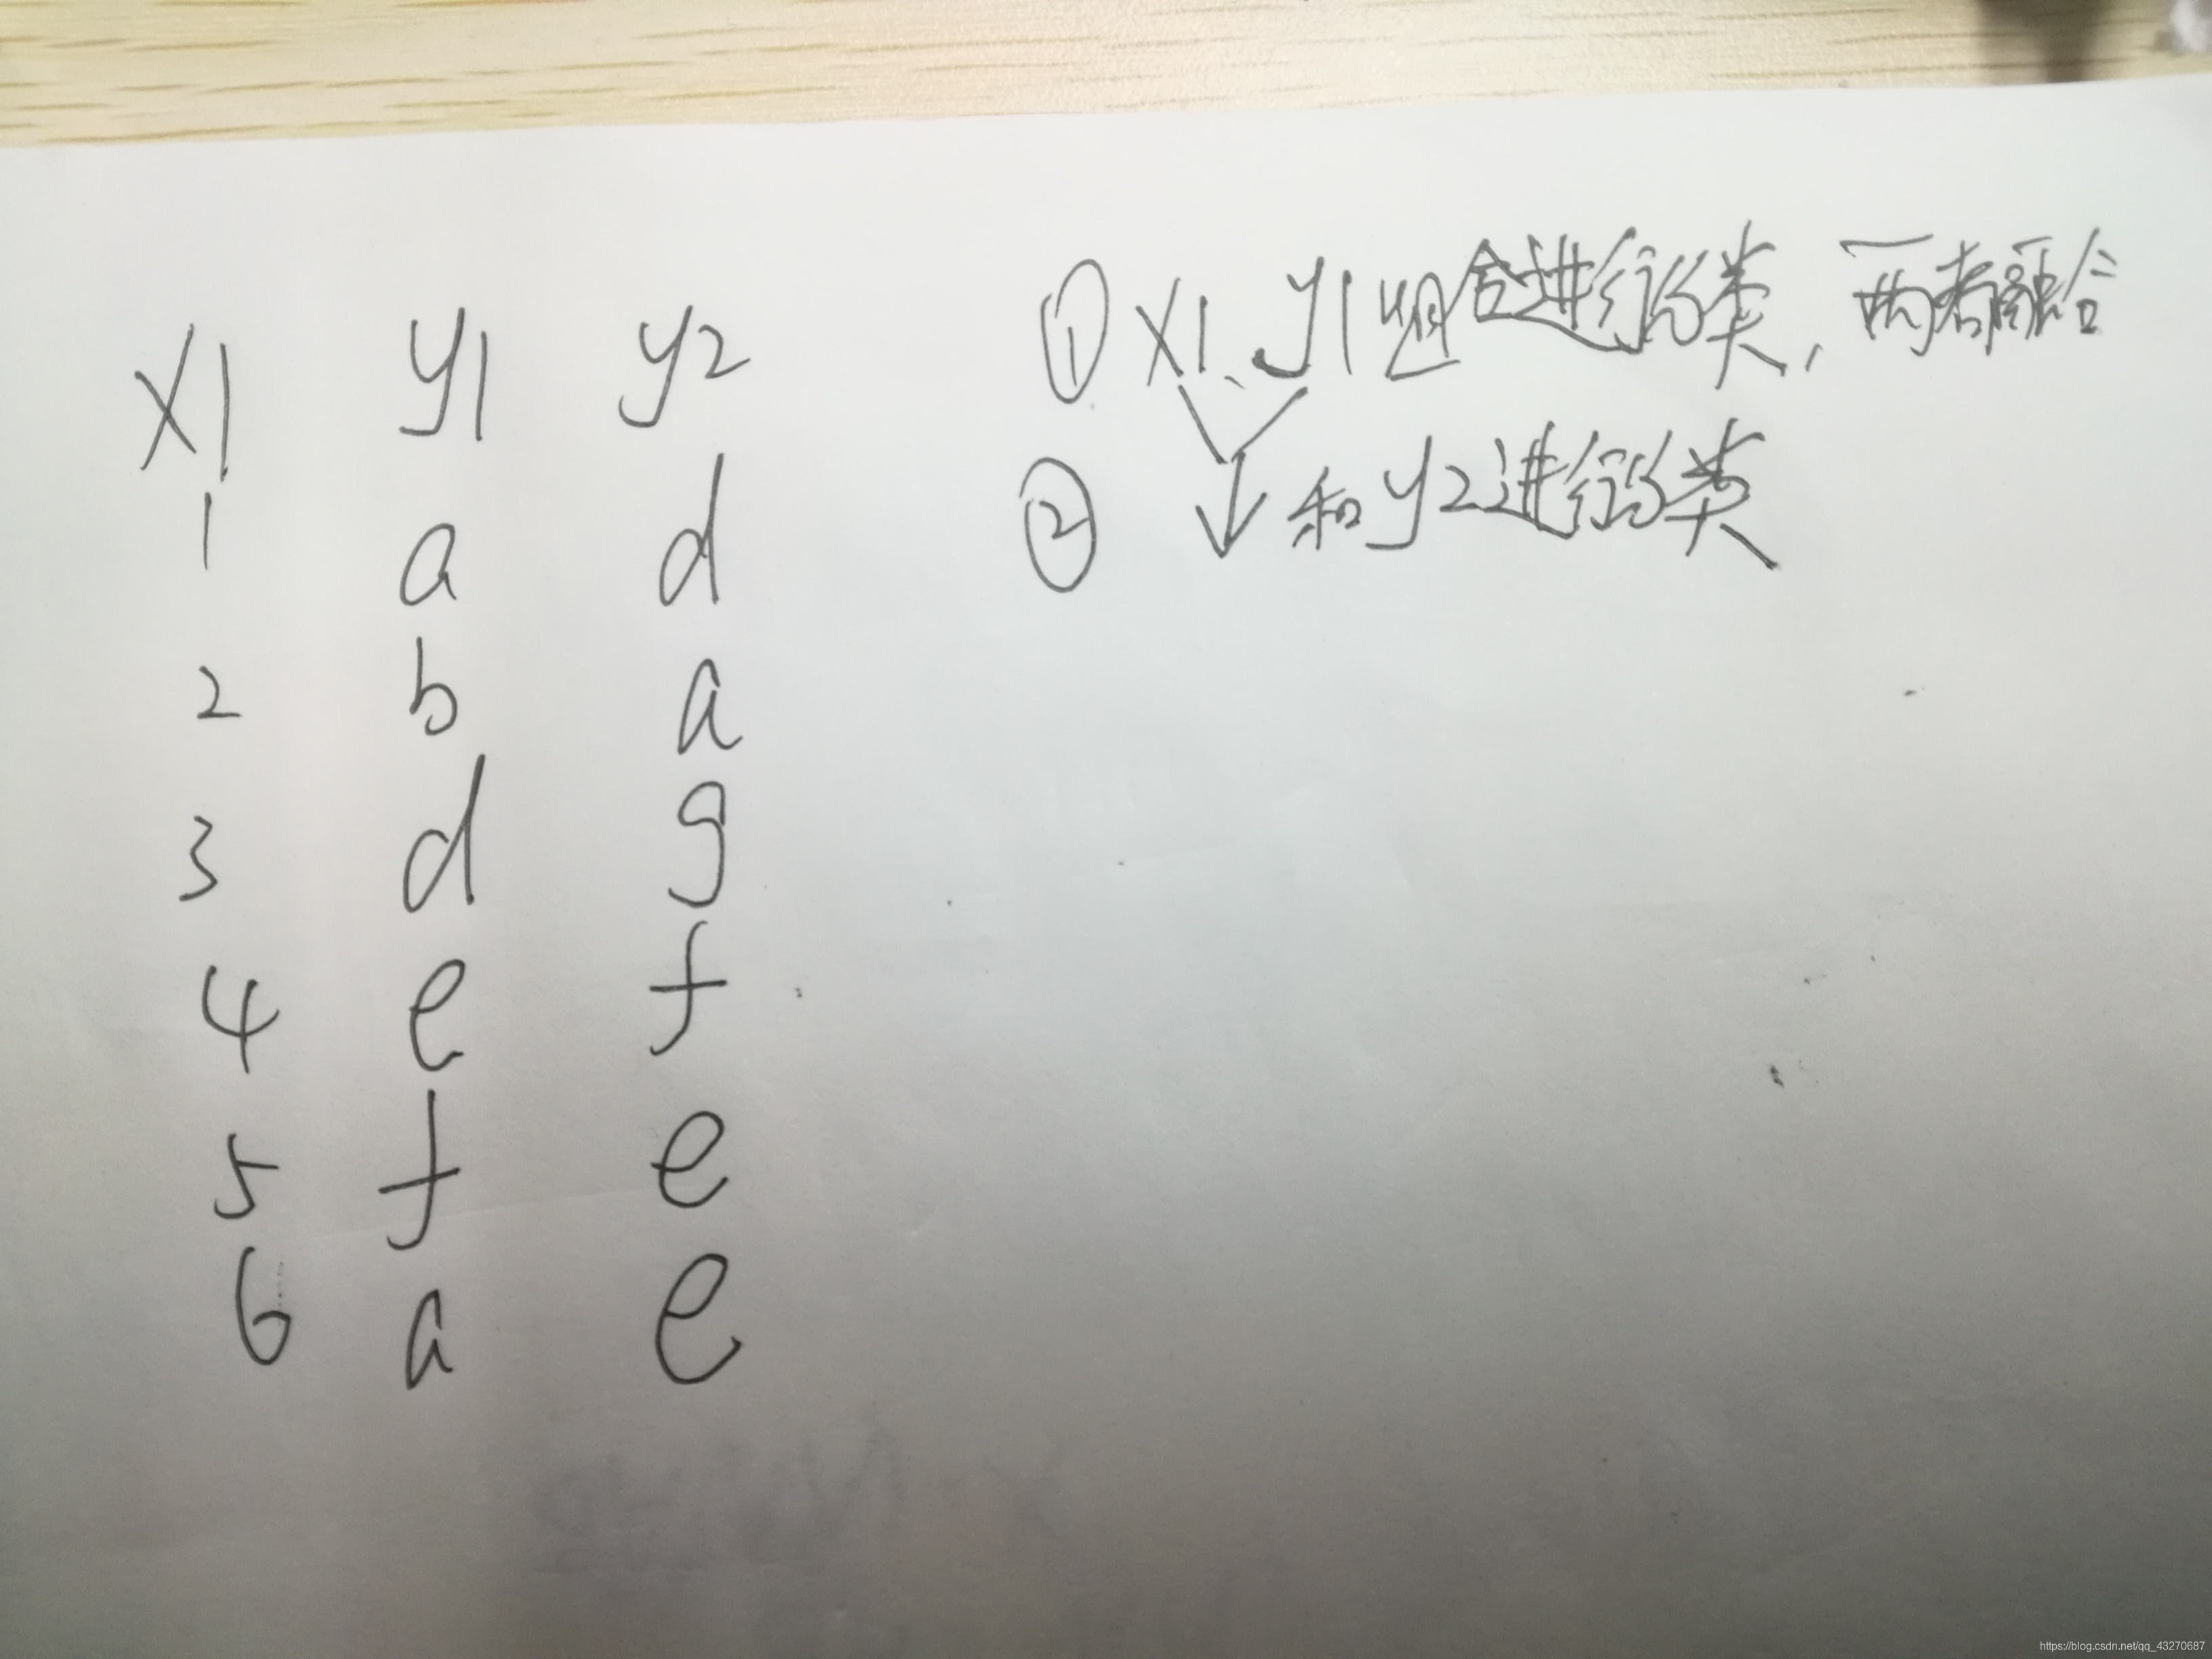 x1 y1 y2
1 a d
2 b a
3 d g
4 e f
5 f e
6 a e
① x1、y1组合进行分类，两者融合
② 和y2进行分类
https://blog.csdn.net/qq_43270687